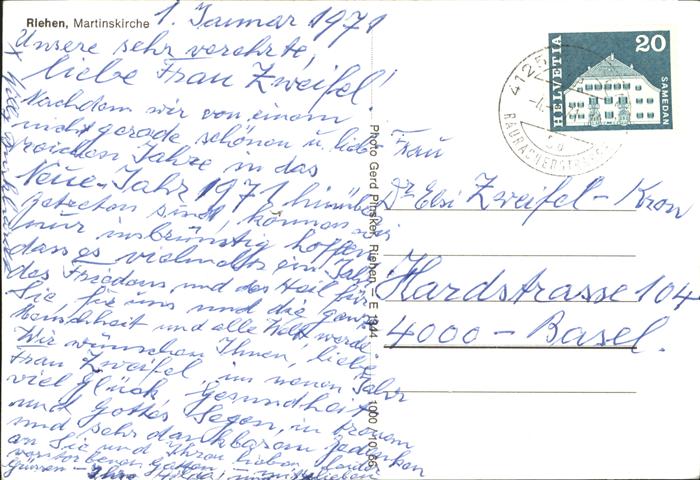 Riehen, Martinskirche
1. Januar 1971
Unsere sehr verehrte,
liebe Frau Zweifel!
Nachdem wir von einem
nicht gerade schönen u. liebe
reichen Jahre in das
Neue-Jahr 1971 hinüber
getreten sind, können wir
nur inbrünstig hoffen,
dass es vielmehr ein Jahr
des Friedens und des Heil für
Sie, für uns und die ganze
Menschheit und alle Welt werde.
Wir wünschen Ihnen, liebe
Frau Zweifel, im neuen Jahr
viel Glück, Gesundheit
und Gottes Segen, in frohem
und sehr dankbarem Gedenken
an Sie und Ihren lieben
verstorbenen Gatten - mit lieben
Grüssen - Ihre
Photo Gerd Pinsker, Riehen - E 1944
1000 - 10. 66
HELVETIA
20
SAMEDAN
4125
RAURACHERSTRASSE
Frau
Dr Elsi Zweifel-Kron
Hardstrasse 104
4000 - Basel.